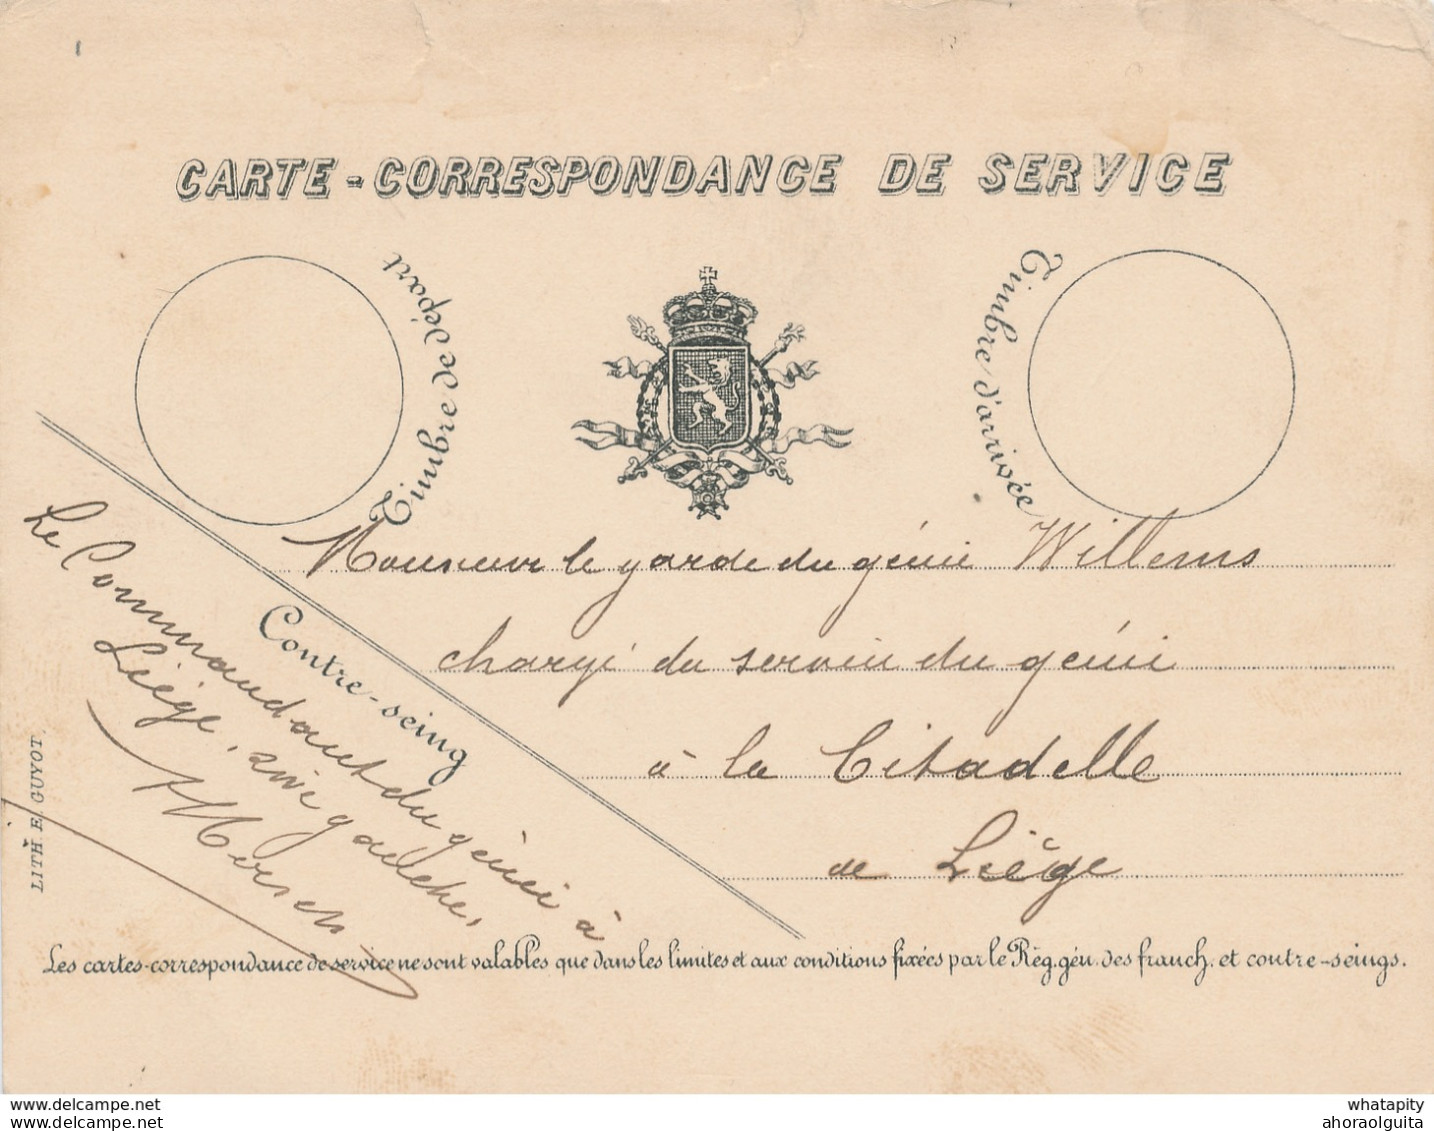 CARTE-CORRESPONDANCE DE SERVICE
Timbre de départ
Timbre d'arrivée
Monsieur le garde du génie Willems
chargé du service du génie
à la Citadelle
de Liège
Contre-seing
Le Commandant du génie à
Liège, rive gauche,
LITH. E. GUYOT.
Les cartes-correspondance de service ne sont valables que dans les limites et aux conditions fixées par le Règ. gén. des franch. et contre-seings.
www.delcampe.net
www.delcampe.net
whatapity
ahoraolguita